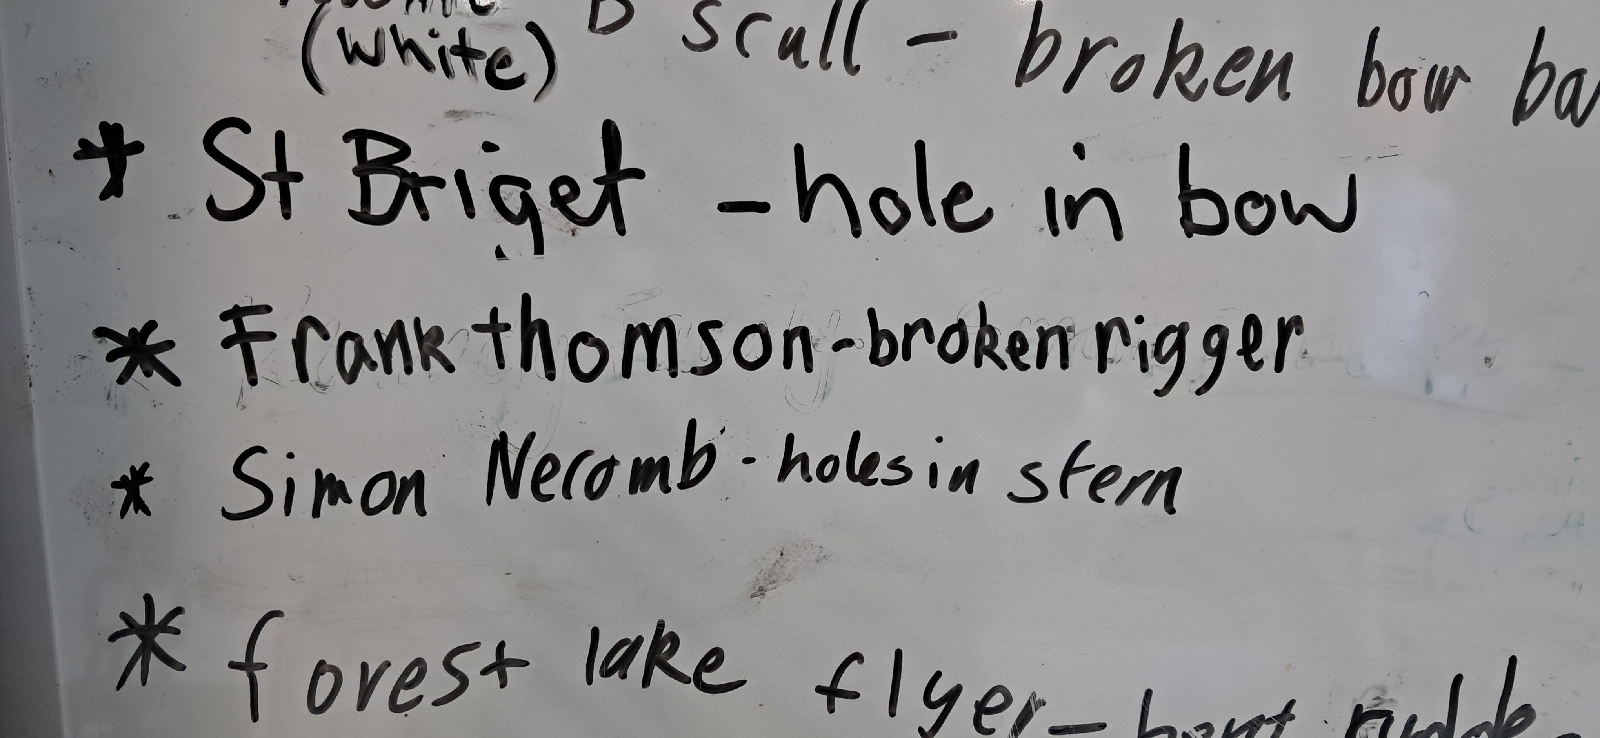 (white) D scull - broken bow
* St Briget - hole in bow
* Frank thomson - broken rigger
* Simon Necomb - holes in stern
* forest lake flyer - bent rudde